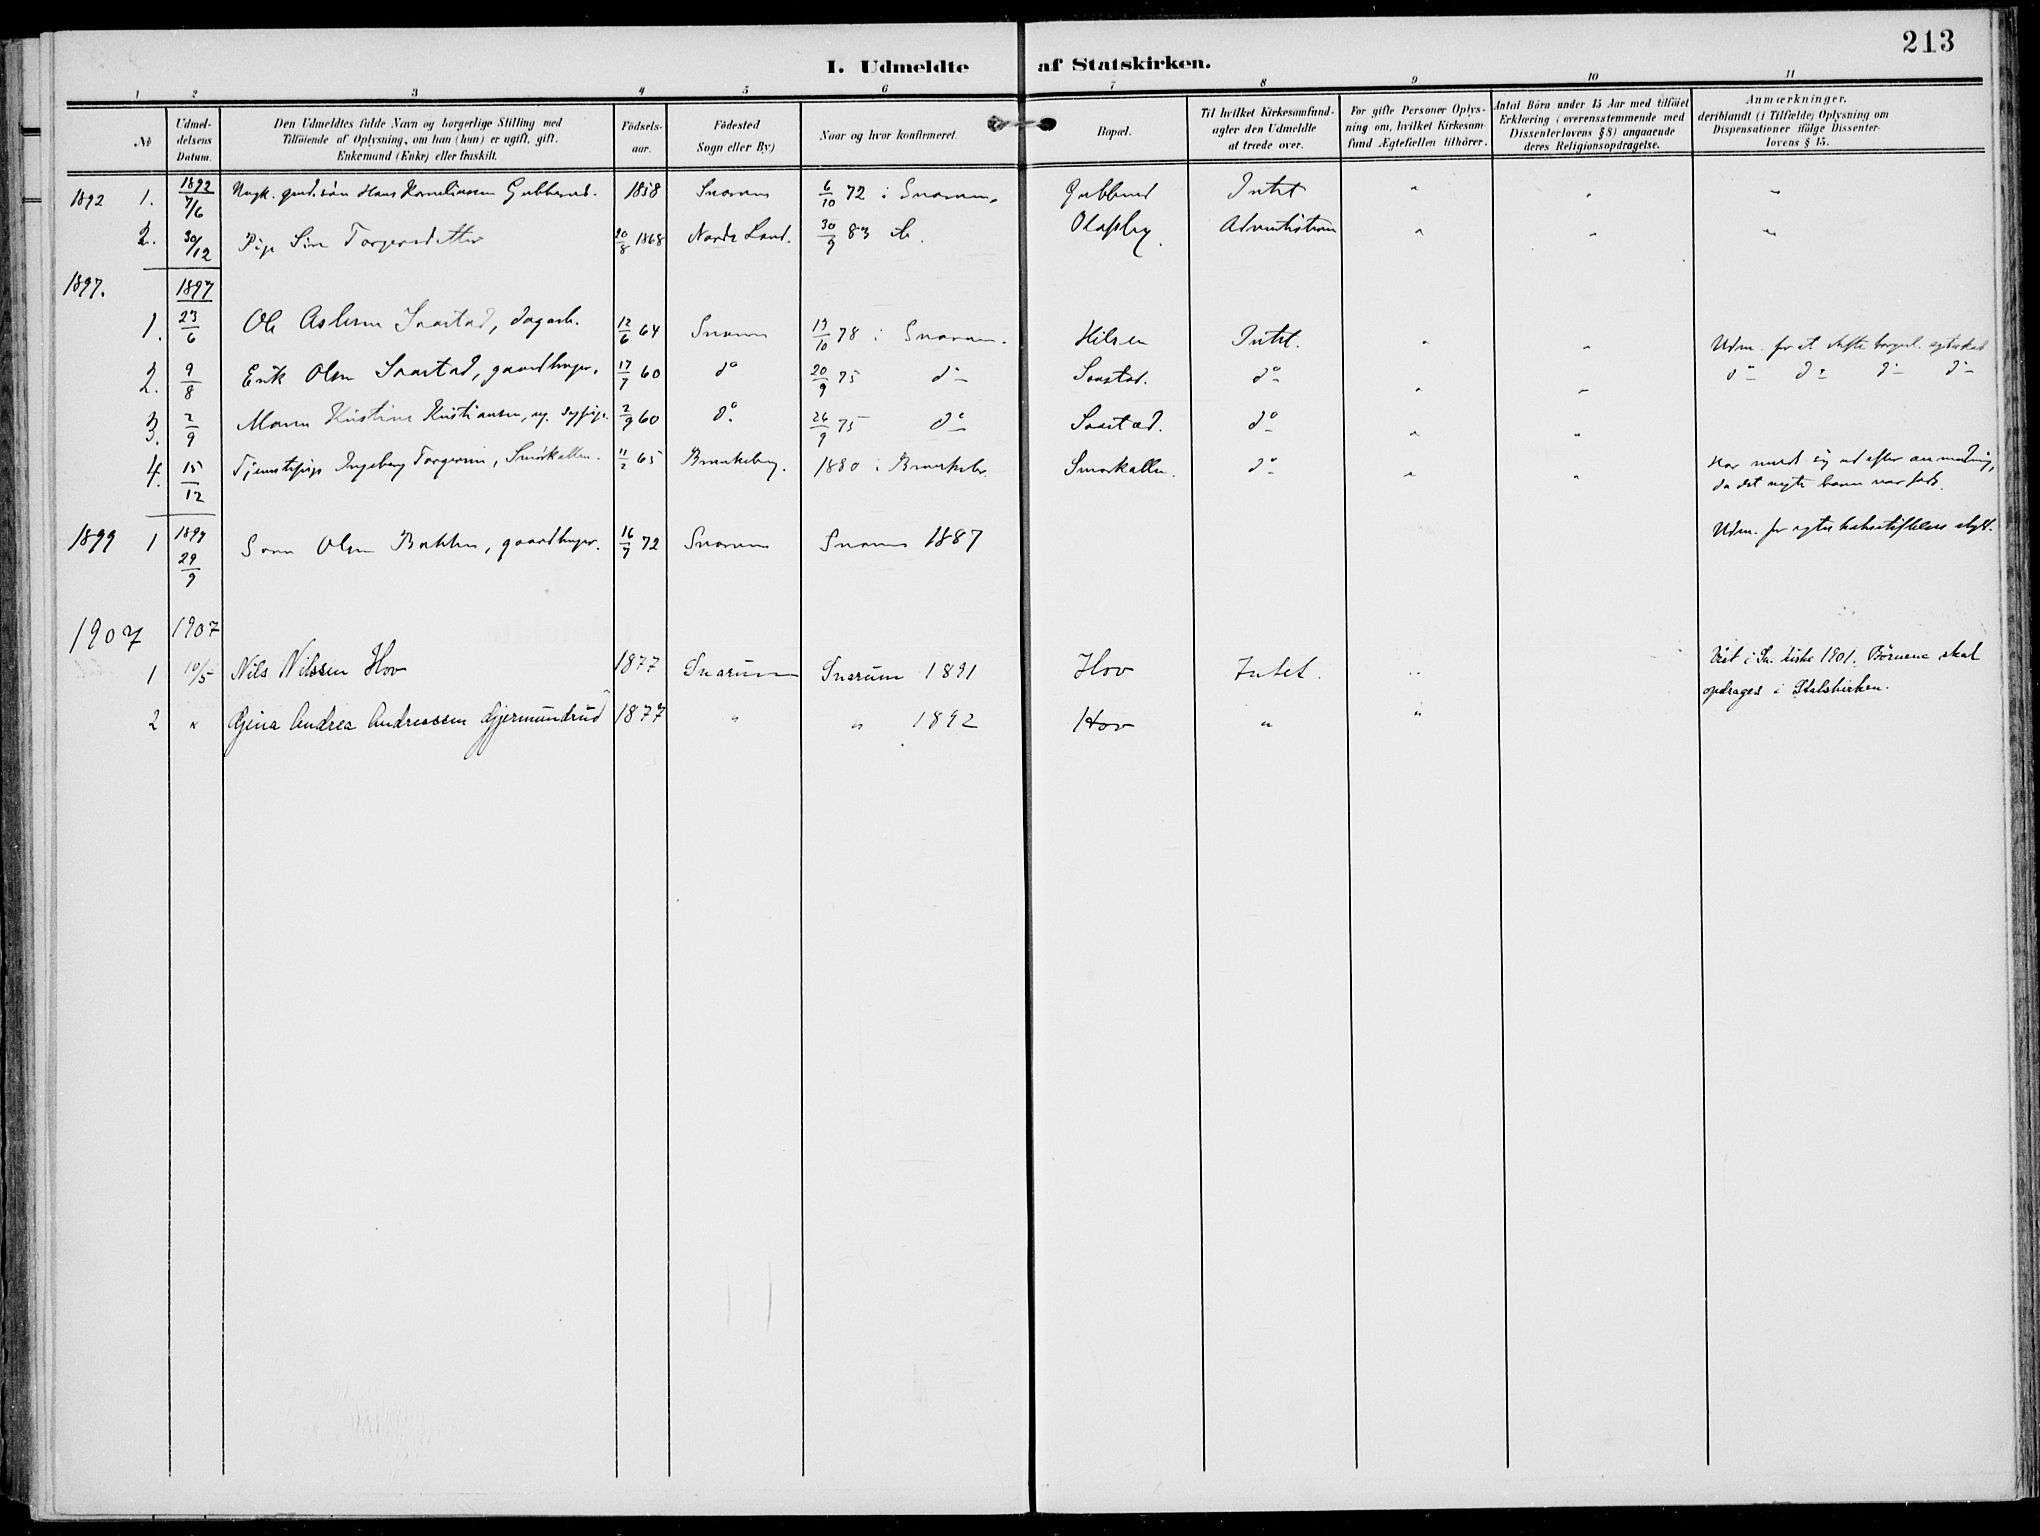 213
I. Udmeldte af Statskirken.
1 2 3 4 5 6 7 8 9 10 11
№
Udmel-
delsens
Datum.
Den Udmeldtes fulde Navn og borgerlige Stilling med
Tilföiende af Oplysning, om han (hun) er ugift, gift.
Enkemand (Enke) eller fraskilt.
Födsels-
aar.
Födested
Sogn eller By)
Naar og hvor konfirmeret.
Bopæl.
Til hvilket Kirkesamfund-
agter den Udmeldte
at træde over.
For gifte Personer Oplys-
ning om, hvilket Kirkesam-
fund Ægtefællen tilhörer.
Antal Börn under 15 Aar med tilföiet
Erklæring (overensstemmende med
Dissenterlovens § 8) angaaende
deres Religionsopdragelse.
Anmærkninger,
deriblandt (i Tilfælde) Oplysning om
Dispensationer ifölge Dissenter-
lovens § 15.
1892 1. 1892 7/6 Hans Korneliussen Gubberud. 1858 Snarum 6/10 72 i Snarum. Gubberud Intet " " "
2. 30/12 Pige Siri Torgersdatter 20/8 1868 Nordre Land. 30/9 83 Olafsby. " " "
1897. 1897
1. 23/6 Ole Aslesen Saastad, dagarb. 12/6 64 Snarum 13/10 78 i Snarum. Hilsen Intet. " " Udm. for at stifte borgerl. egteskab
2. 9/8 Erik Olsen Saastad, gaardbruger. 17/7 60 do 20/9 75 do Saastad. do " " do do do do
3. 2/9 Maren Kristine Kristiansen, ug. sypige. 2/9 60 do. 26/9 75 do Saastad. do " "
4. 15/12 Tjenestepige Ingeborg Torgersen, Smørkollen. 11/2 65 1880 i Smørkollen. do " " Har meldt sig ud efter anmodning,
da det barn var født.
1899 1 1899 29/9 Olsen Bakken, gaardbruger. 16/7 72 Snarum Snarum 1887 Udm. for
1907 1907
1 10/5 Nils Nilssen Hov 1877 Snarum Snarum 1891 Hov Intet. " Viet i Sn. kirke 1901. Børnene skal
opdrages i Statskirken.
2 " Gina Andrea Andreassen Gjermundrud 1877 " " 1892 Hov " "